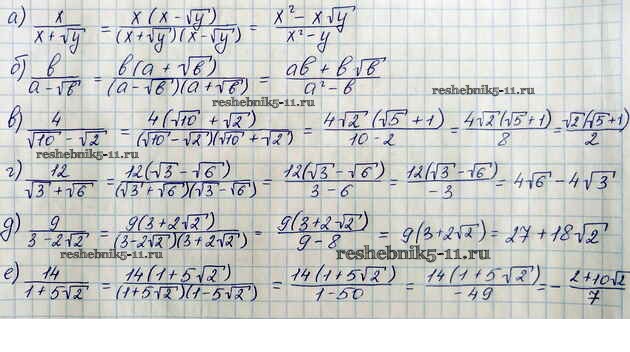 а) x/(x + √y) = x(x - √y)/((x + √y)(x - √y)) = (x² - x√y)/(x² - y)
б) в/(a - √в) = в(a + √в)/((a - √в)(a + √в)) = (aв + в√в)/(a² - в)
reshebnik5-11.ru reshebnik5-11.ru
в) 4/(√10 - √2) = 4(√10 + √2)/((√10 - √2)(√10 + √2)) = 4√2(√5 + 1)/(10 - 2) = 4√2(√5+1)/8 = √2(√5+1)/2
reshebnik5-11.ru
г) 12/(√3 + √6) = 12(√3 - √6)/((√3 + √6)(√3 - √6)) = 12(√3 - √6)/(3 - 6) = 12(√3 - √6)/(-3) = 4√6 - 4√3
д) 9/(3 - 2√2) = 9(3 + 2√2)/((3 - 2√2)(3 + 2√2)) = 9(3 + 2√2)/(9 - 8) = 9(3 + 2√2) = 27 + 18√2
reshebnik5-11.ru reshebnik5-11.ru
е) 14/(1 + 5√2) = 14(1 + 5√2)/((1 + 5√2)(1 - 5√2)) = 14(1 + 5√2)/(1 - 50) = 14(1 + 5√2)/(-49) = - (2 + 10√2)/7